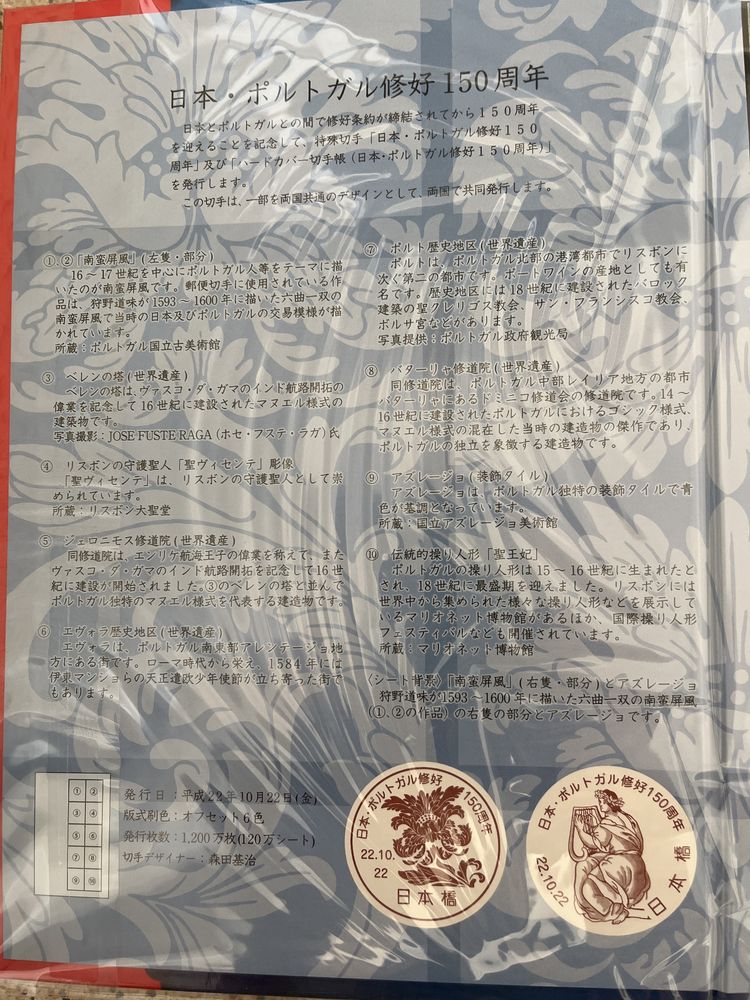 日本・ポルトガル修好150周年
日本とポルトガルとの間で修好条約が締結されてから150周年
を迎えることを記念して、特殊切手「日本・ポルトガル修好150
周年」及び「ハードカバー切手帳(日本・ポルトガル修好150周年)」
を発行します。
この切手は、一部を両国共通のデザインとして、両国で共同発行します。
①、②「南蛮屏風」(左隻・部分)
16～17世紀を中心にポルトガル人等をテーマに描
いたのが南蛮屏風です。郵便切手に使用されている作
品は、狩野道味が1593～1600年に描いた六曲一双の
南蛮屏風で当時の日本及びポルトガルの交易模様が描
かれています。
所蔵：ポルトガル国立古美術館
③ ベレンの塔(世界遺産)
ベレンの塔は、ヴァスコ・ダ・ガマのインド航路開拓の
偉業を記念して16世紀に建設されたマヌエル様式の
建築物です。
写真撮影：JOSE FUSTE RAGA(ホセ・フステ・ラガ)氏
④ リスボンの守護聖人「聖ヴィセンテ」彫像
「聖ヴィセンテ」は、リスボンの守護聖人として崇
められています。
所蔵：リスボン大聖堂
⑤ ジェロニモス修道院(世界遺産)
同修道院は、エンリケ航海王子の偉業を称えて、また
ヴァスコ・ダ・ガマのインド航路開拓を記念して16世
紀に建設が開始されました。③のベレンの塔と並んで
ポルトガル独特のマヌエル様式を代表する建造物です。
⑥ エヴォラ歴史地区(世界遺産)
エヴォラは、ポルトガル南東部アレンテージョ地
方にある街です。ローマ時代から栄え、1584年には
伊東マンショらの天正遣欧少年使節が立ち寄った街で
もあります。
⑦ ポルト歴史地区(世界遺産)
ポルトは、ポルトガル北部の港湾都市でリスボンに
次ぐ第二の都市です。ポートワインの産地としても有
名です。歴史地区には18世紀に建設されたバロック
建築の聖クレリゴス教会、サン・フランシスコ教会、
ボルサ宮などがあります。
写真提供：ポルトガル政府観光局
⑧ バターリャ修道院(世界遺産)
同修道院は、ポルトガル中部レイリア地方の都市
バターリャにあるドミニコ修道会の修道院です。14～
16世紀に建設されたポルトガルにおけるゴシック様式、
マヌエル様式の混在した当時の建造物の傑作であり、
ポルトガルの独立を象徴する建造物です。
⑨ アズレージョ(装飾タイル)
アズレージョは、ポルトガル独特の装飾タイルで青
色が基調となっています。
所蔵：国立アズレージョ美術館
⑩ 伝統的操り人形「聖王妃」
ポルトガルの操り人形は15～16世紀に生まれたと
され、18世紀に最盛期を迎えました。リスボンには
世界中から集められた様々な操り人形などを展示して
いるマリオネット博物館があるほか、国際操り人形
フェスティバルなども開催されています。
所蔵：マリオネット博物館
〈シート背景〉「南蛮屏風」(右隻・部分)とアズレージョ
狩野道味が1593～1600年に描いた六曲一双の南蛮屏風
(①、②の作品)の右隻の部分とアズレージョです。
① ②
③ ④
⑤ ⑥
⑦ ⑧
⑨ ⑩
発行日：平成22年10月22日(金)
版式刷色：オフセット6色
発行枚数：1,200万枚(120万シート)
切手デザイナー：森田基治
日本・ポルトガル修好150周年
22.10.
22
日本橋
日本・ポルトガル修好150周年
22.10.22
日本橋